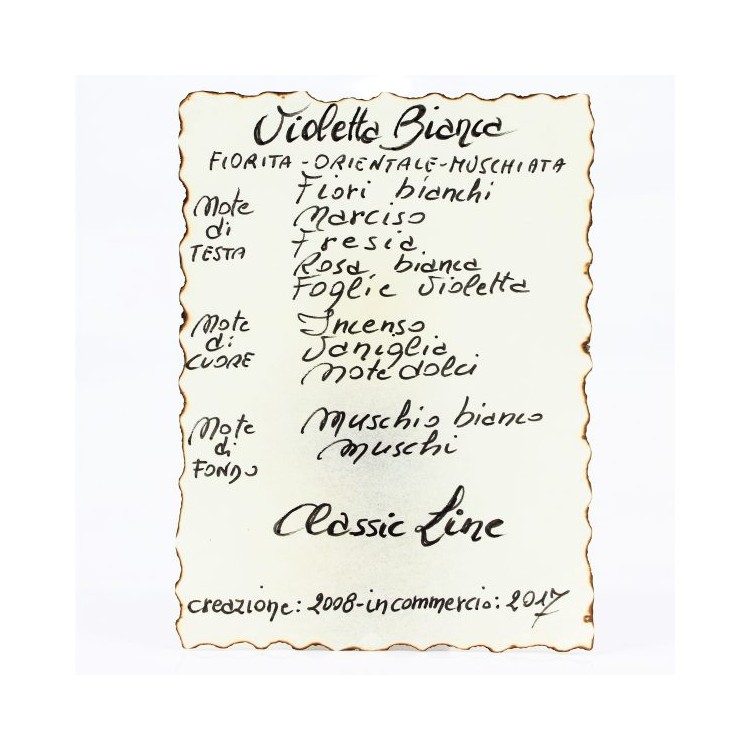 Violetta Bianca
FIORITA - ORIENTALE - MUSCHIATA
Note di TESTA
Fiori bianchi
Marciso
Fresia
Rosa bianca
Foglie Violetta
Note di CUORE
Incenso
Vaniglia
Note dolci
Note di FONDO
Muschio bianco
Muschi
Classic Line
creazione: 2008 - in commercio: 2017